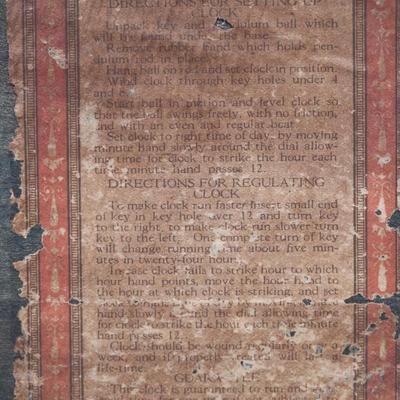 DIRECTIONS FOR SETTING UP
CLOCK
Unpack key and pendulum ball which
will be found under the base.
Remove rubber band which holds pen-
dulum rod in place.
Hang ball on rod and set clock in position.
Wind clock through key holes under 4
and 8.
Start ball in motion and level clock so
that the ball swings freely, with no friction,
and with an even and regular beat.
Set clock to right time of day, by moving
minute hand slowly around the dial allow-
ing time for clock to strike the hour each
time minute hand passes 12.
DIRECTIONS FOR REGULATING
CLOCK
To make clock run faster insert small end
of key in key hole over 12 and turn key
to the right, to make clock run slower turn
key to the left. One complete turn of key
will change running time about five min-
utes in twenty-four hours.
In case clock fails to strike hour to which
hour hand points, move the hour hand to
the hour at which clock is striking, and set
hand slowly around the dial allowing time
for clock to strike the hour each time minute
hand passes 12.
Clock should be wound regularly once a
week, and if properly treated will last a
life-time.
GUARANTEE
This clock is guaranteed to run and